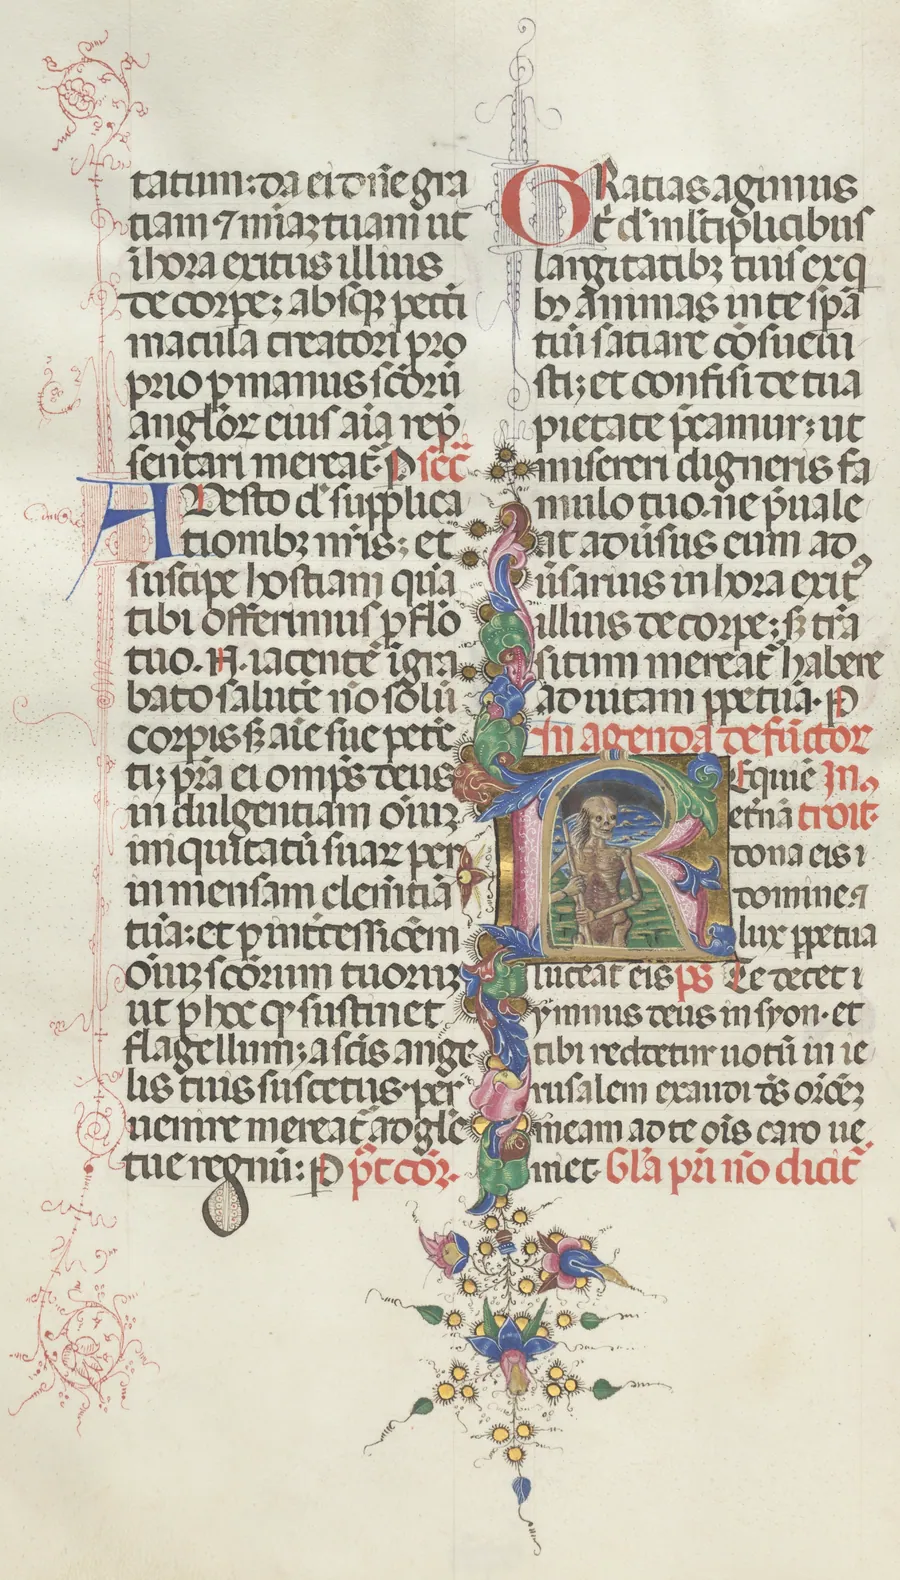 tatum: da ei dn̄e gra
tiam ⁊ mīaꝫ tuam ut
ī hora exitus illius
de corpe; absq; petti
macula creatori pro
prio p manus sc̄orū
anglo̅ꝝ eius aīa rep̄
sentari mereat̄. P sec̄
ADesto d̄s supplica
tionibꝫ nr̄is; et
suscipe hostiam quā
tibi offerimus p flō
tuo. N. iacente ī gra
bato salutē nō solū
corpis sꝫ aīe sue pete
ti; p̄ta ei omp̄s deus
in dulgentiam oīuꝫ
iniquitatū suaꝝ per
in mensam clem̄tiā
tuā: et p int̄cessiōem
oīuꝫ sc̄orum tuoruꝫ
ut p hoc qꝫ sustinet
flagellum; a sc̄is ange
lis tuis suscetus. per
uenire mereat̄ ad glē
tue regnū: P p̄t cōꝫ.
GRatias agimus
t̄ d̄ ml̄tiplicibus
largitatibꝫ tuis ex q
bꝫ animas in te spā
tiū satiare cōsueui
sti; et confisi de tua
pietate p̄camur; ut
misereri digneris fa
mulo tuo. ne p̄uale
at aduīsus eum ad
ūsarius in hora exit᾿
illius de corpe; sꝫ trā
situm mereat̄ habere
ad uitam ppetuā. P
In agenda defūctoꝝ
REquiē In
etnā troit.
dona eis i
domine. ⁊
lux ppetua
luceat eis ps Te decet i
ymnus deus in syon. et
tibi reddetur uotū in ie
rusalem exaudi d̄s or̄ōeꝫ
meam ad te oīs caro ue
niet. Gl̄a pr̄i nō dicit̄